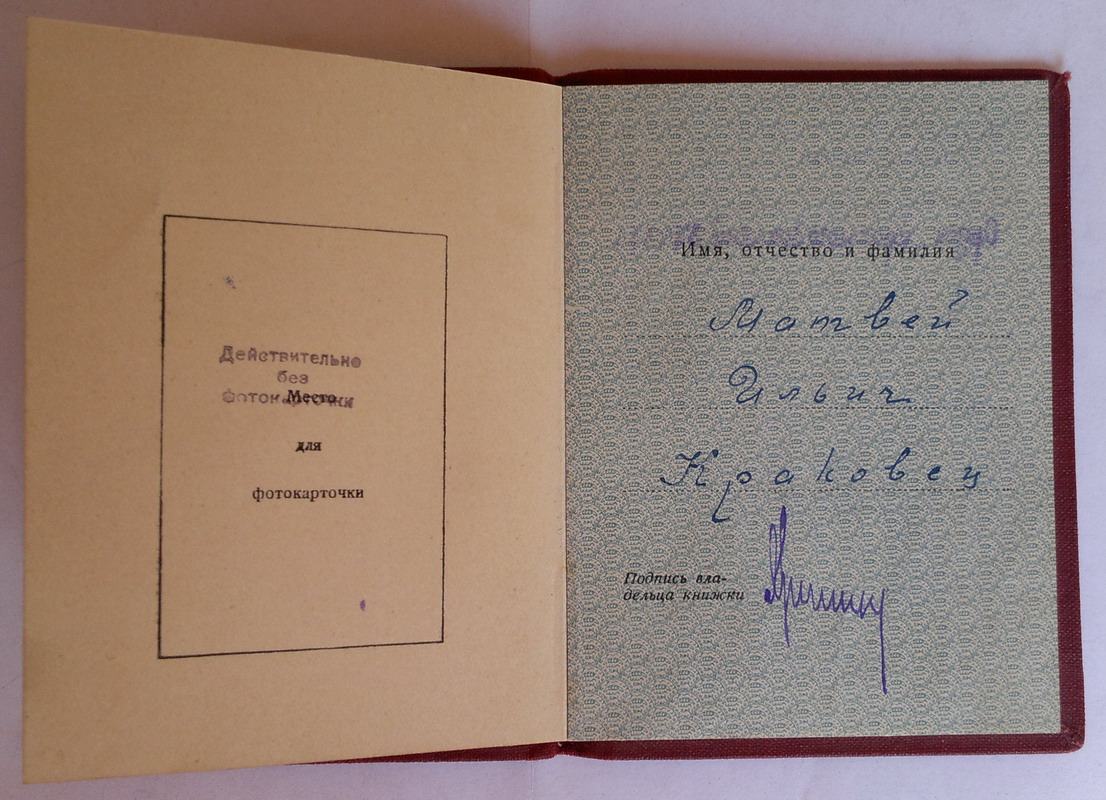 Действительно
без
фотокарточки
Место
для
фотокарточки
Имя, отчество и фамилия
Матвей
Ильич
Краковец
Подпись вла-
дельца книжки